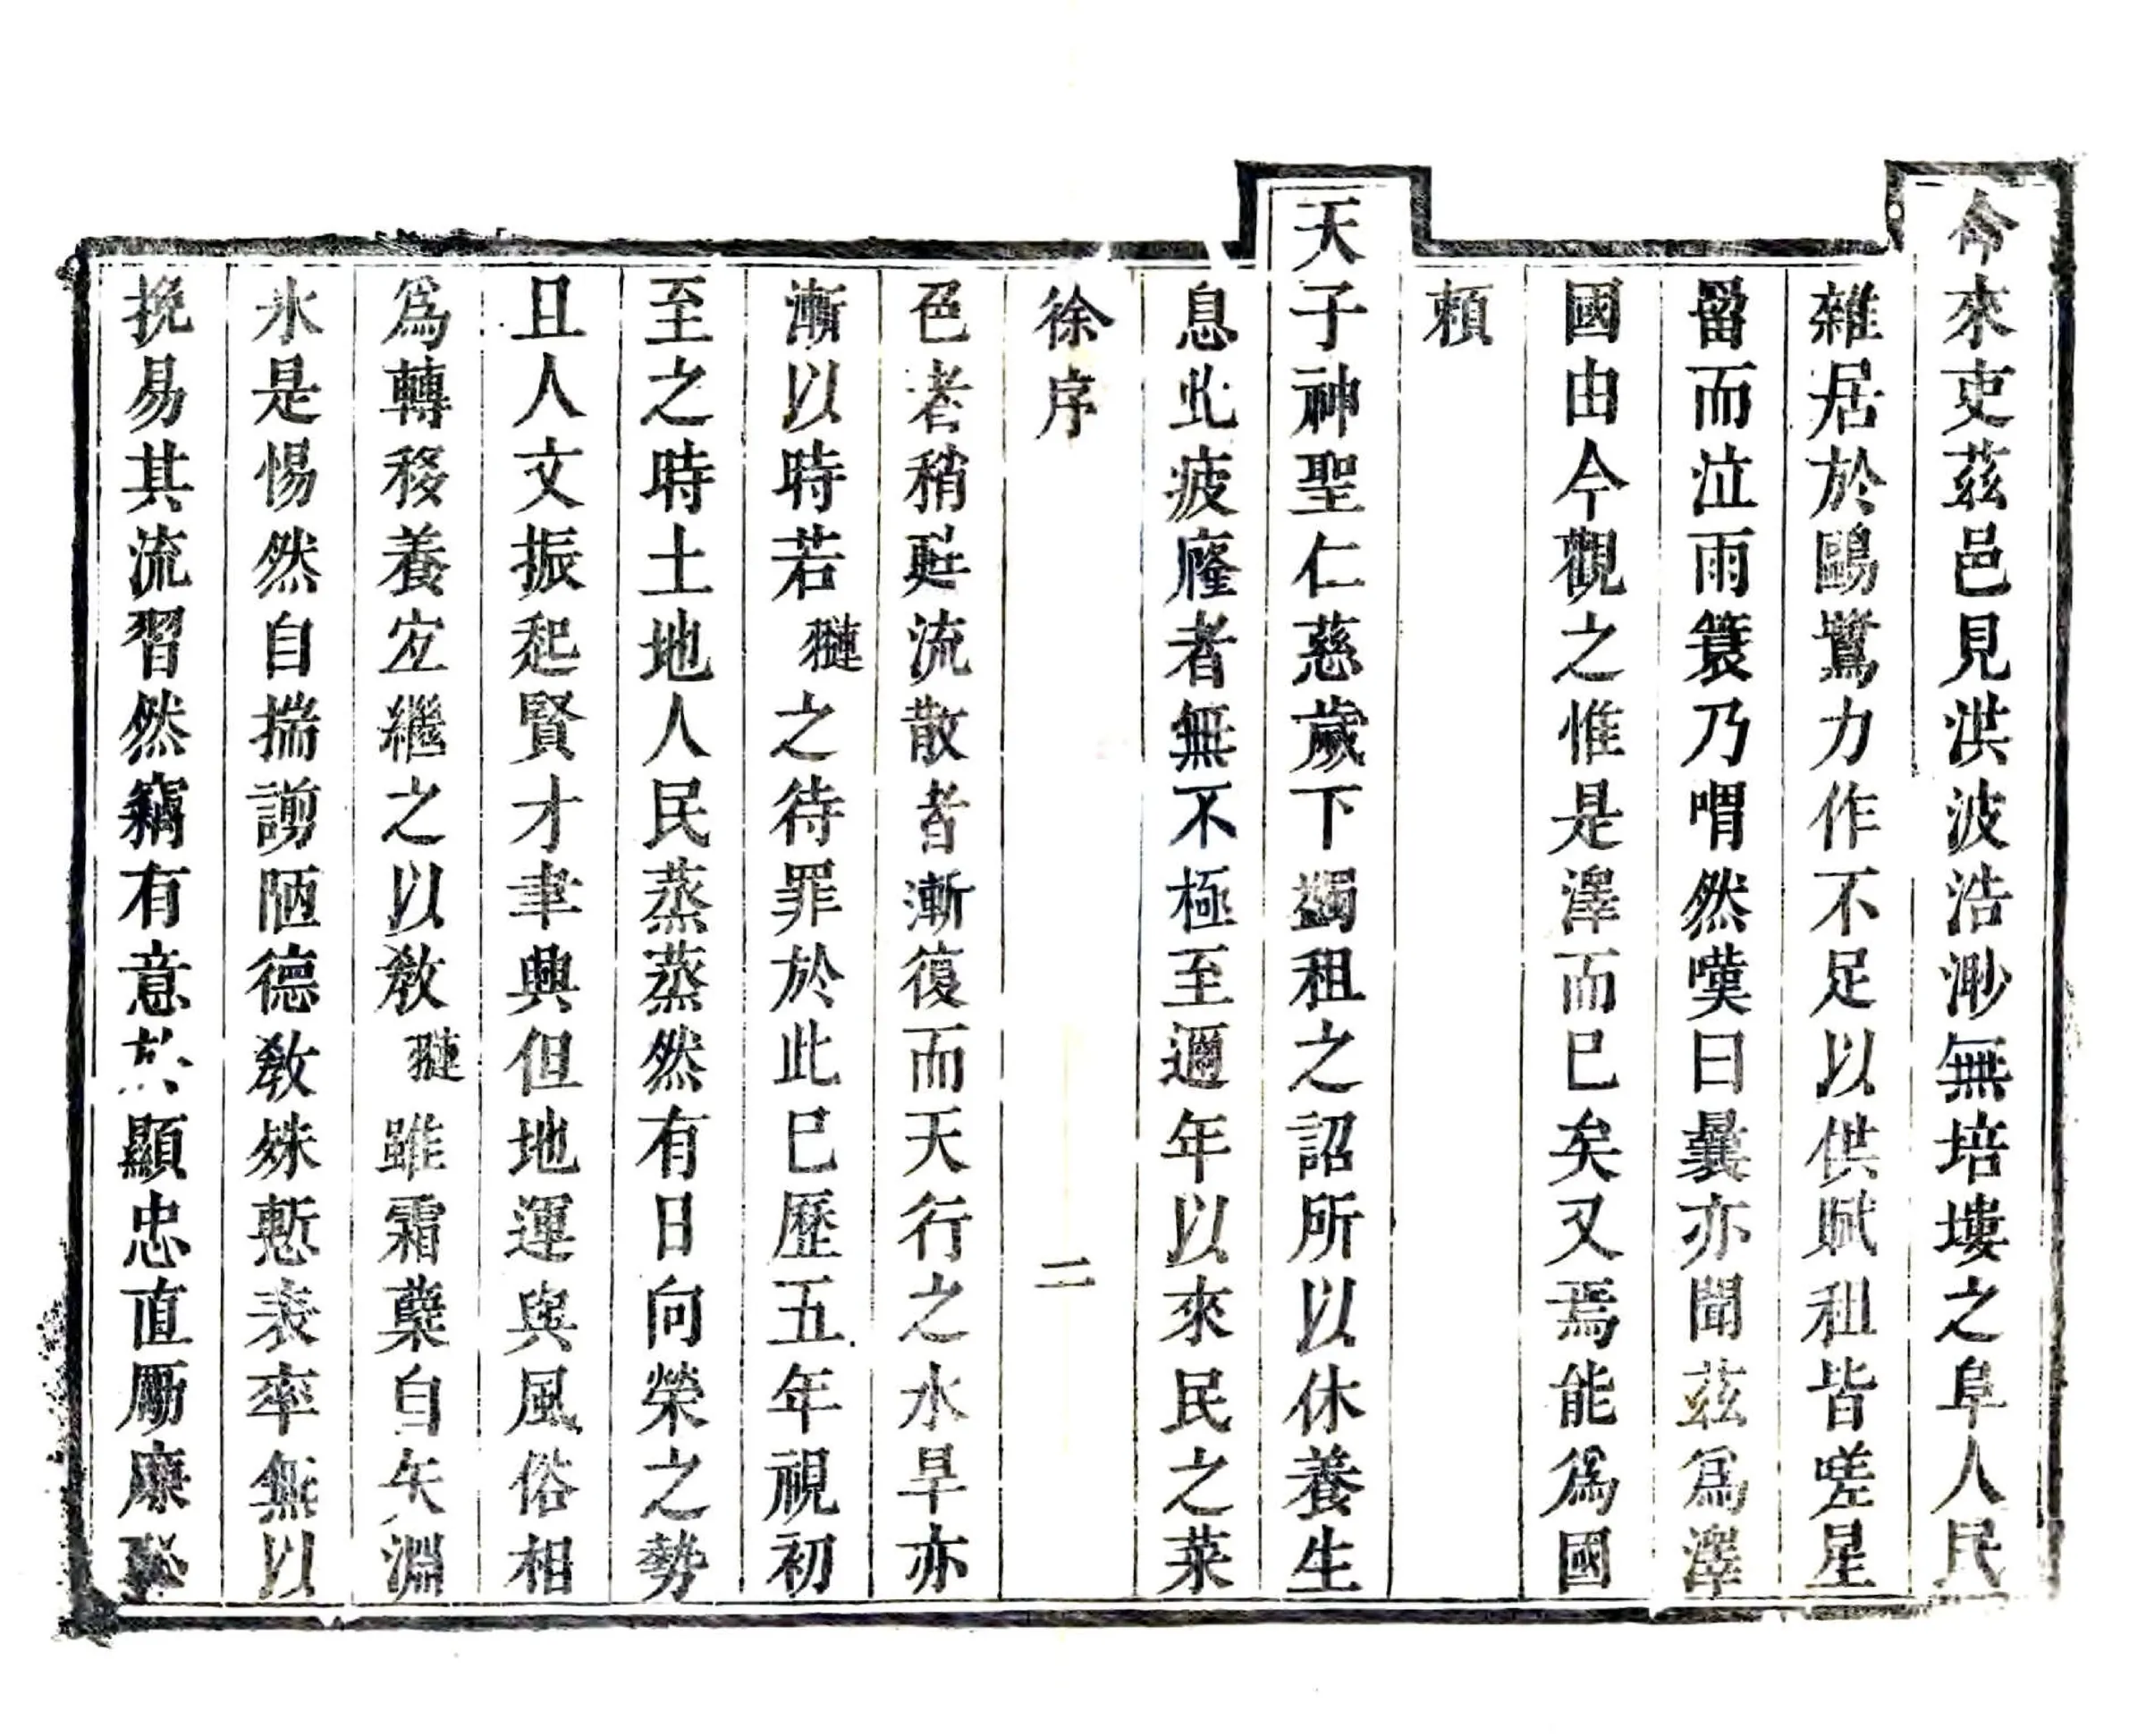 命來吏茲邑見洪波浩渺無培塿之阜人民
雜居於鷗鷺力作不足以供賦租皆嗟星
罶而泣雨簑乃喟然嘆曰曩亦聞茲爲澤
國由今觀之惟是澤而已矣又焉能爲國
頼
天子神聖仁慈歲下蠲租之詔所以休養生
息此疲癃者無不極至邇年以來民之菜
徐序
二
色者稍甦流散者漸復而天行之水旱亦
漸以時若之待罪於此巳歷五年視初
至之時土地人民蒸蒸然有日向榮之勢
且人文振起賢才聿興但地運與風俗相
爲轉移養宐繼之以教雖霜蘗自矢淵
氷是惕然自揣謭陋德教殊慙表率無以
挽易其流習然竊有意於顯忠直勵廉恥